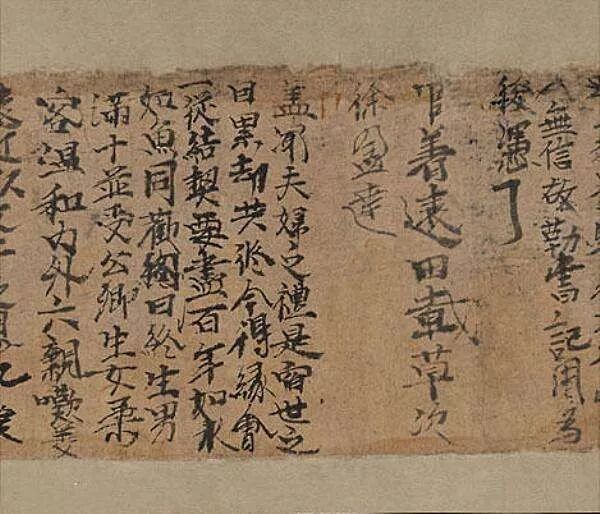 無信故勒書記用為
後憑了
善遠田草次
徐盈達
蓋聞夫婦之禮是宿世之
因累劫共修今得緣會
一從結契要盡百年如水
如魚同歡終日生男
滿十並受公卿生女柔
容溫和內外六親歡美
遠近似父子之恩九族